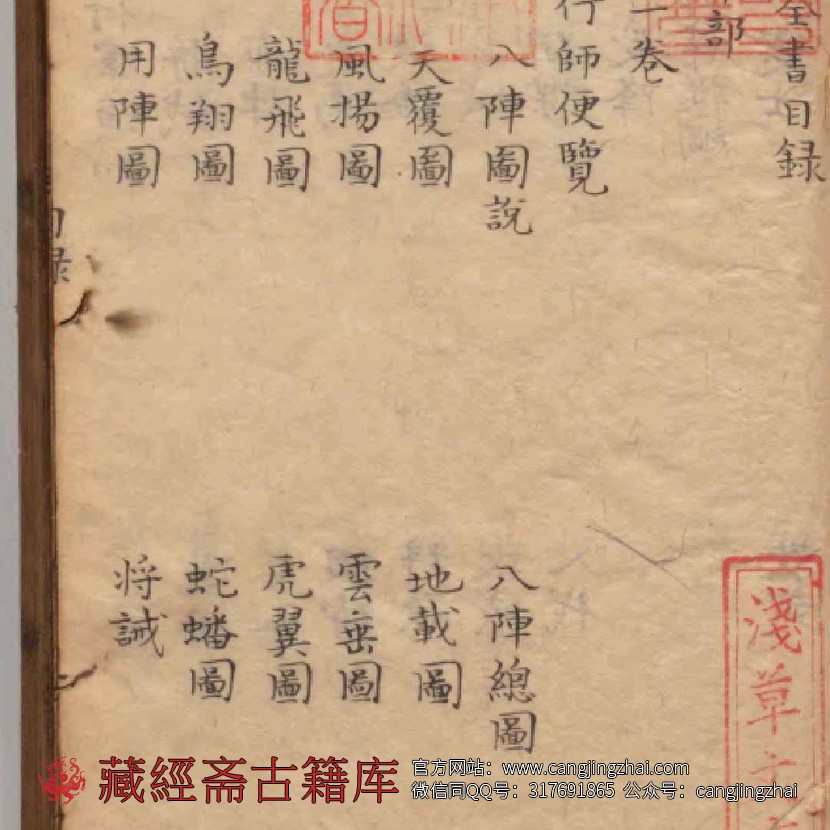 全書目録
部
一卷
行師便覽
八陣圖說
八陣總圖
天覆圖
地載圖
風揚圖
雲垂圖
龍飛圖
虎翼圖
鳥翔圖
蛇蟠圖
用陣圖
将誡
目録
淺草
藏經斋古籍库
官方网站：www.cangjingzhai.com
微信同QQ号：317691865 公众号：cangjingzhai